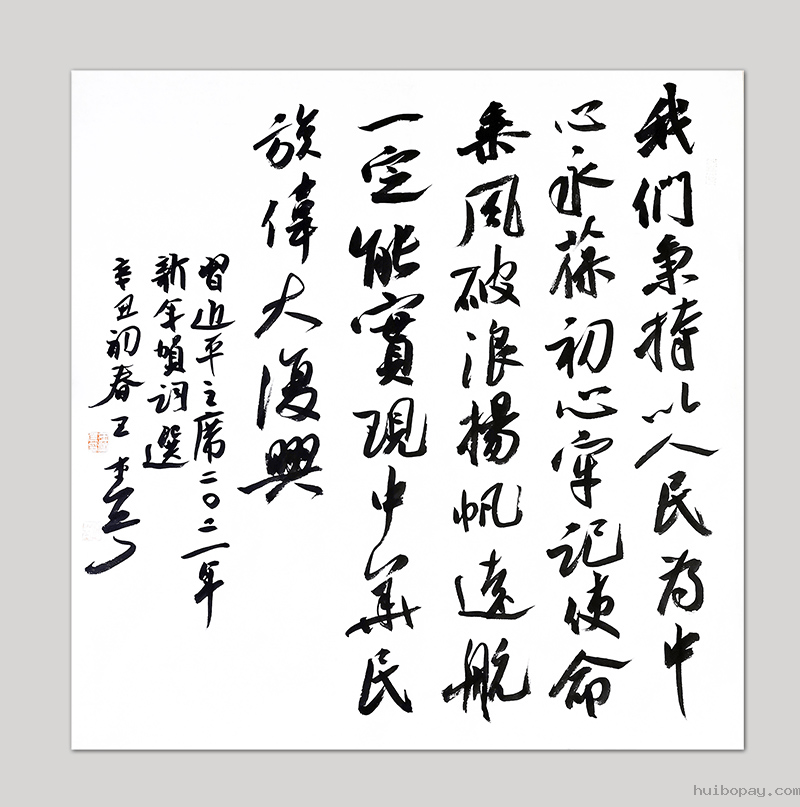 我們秉持以人民為中
心永葆初心牢記使命
乘風破浪揚帆遠航
一定能實現中華民
族偉大復興
習近平主席二〇二一年
新年賀詞選
辛丑初春王
huibopay.com